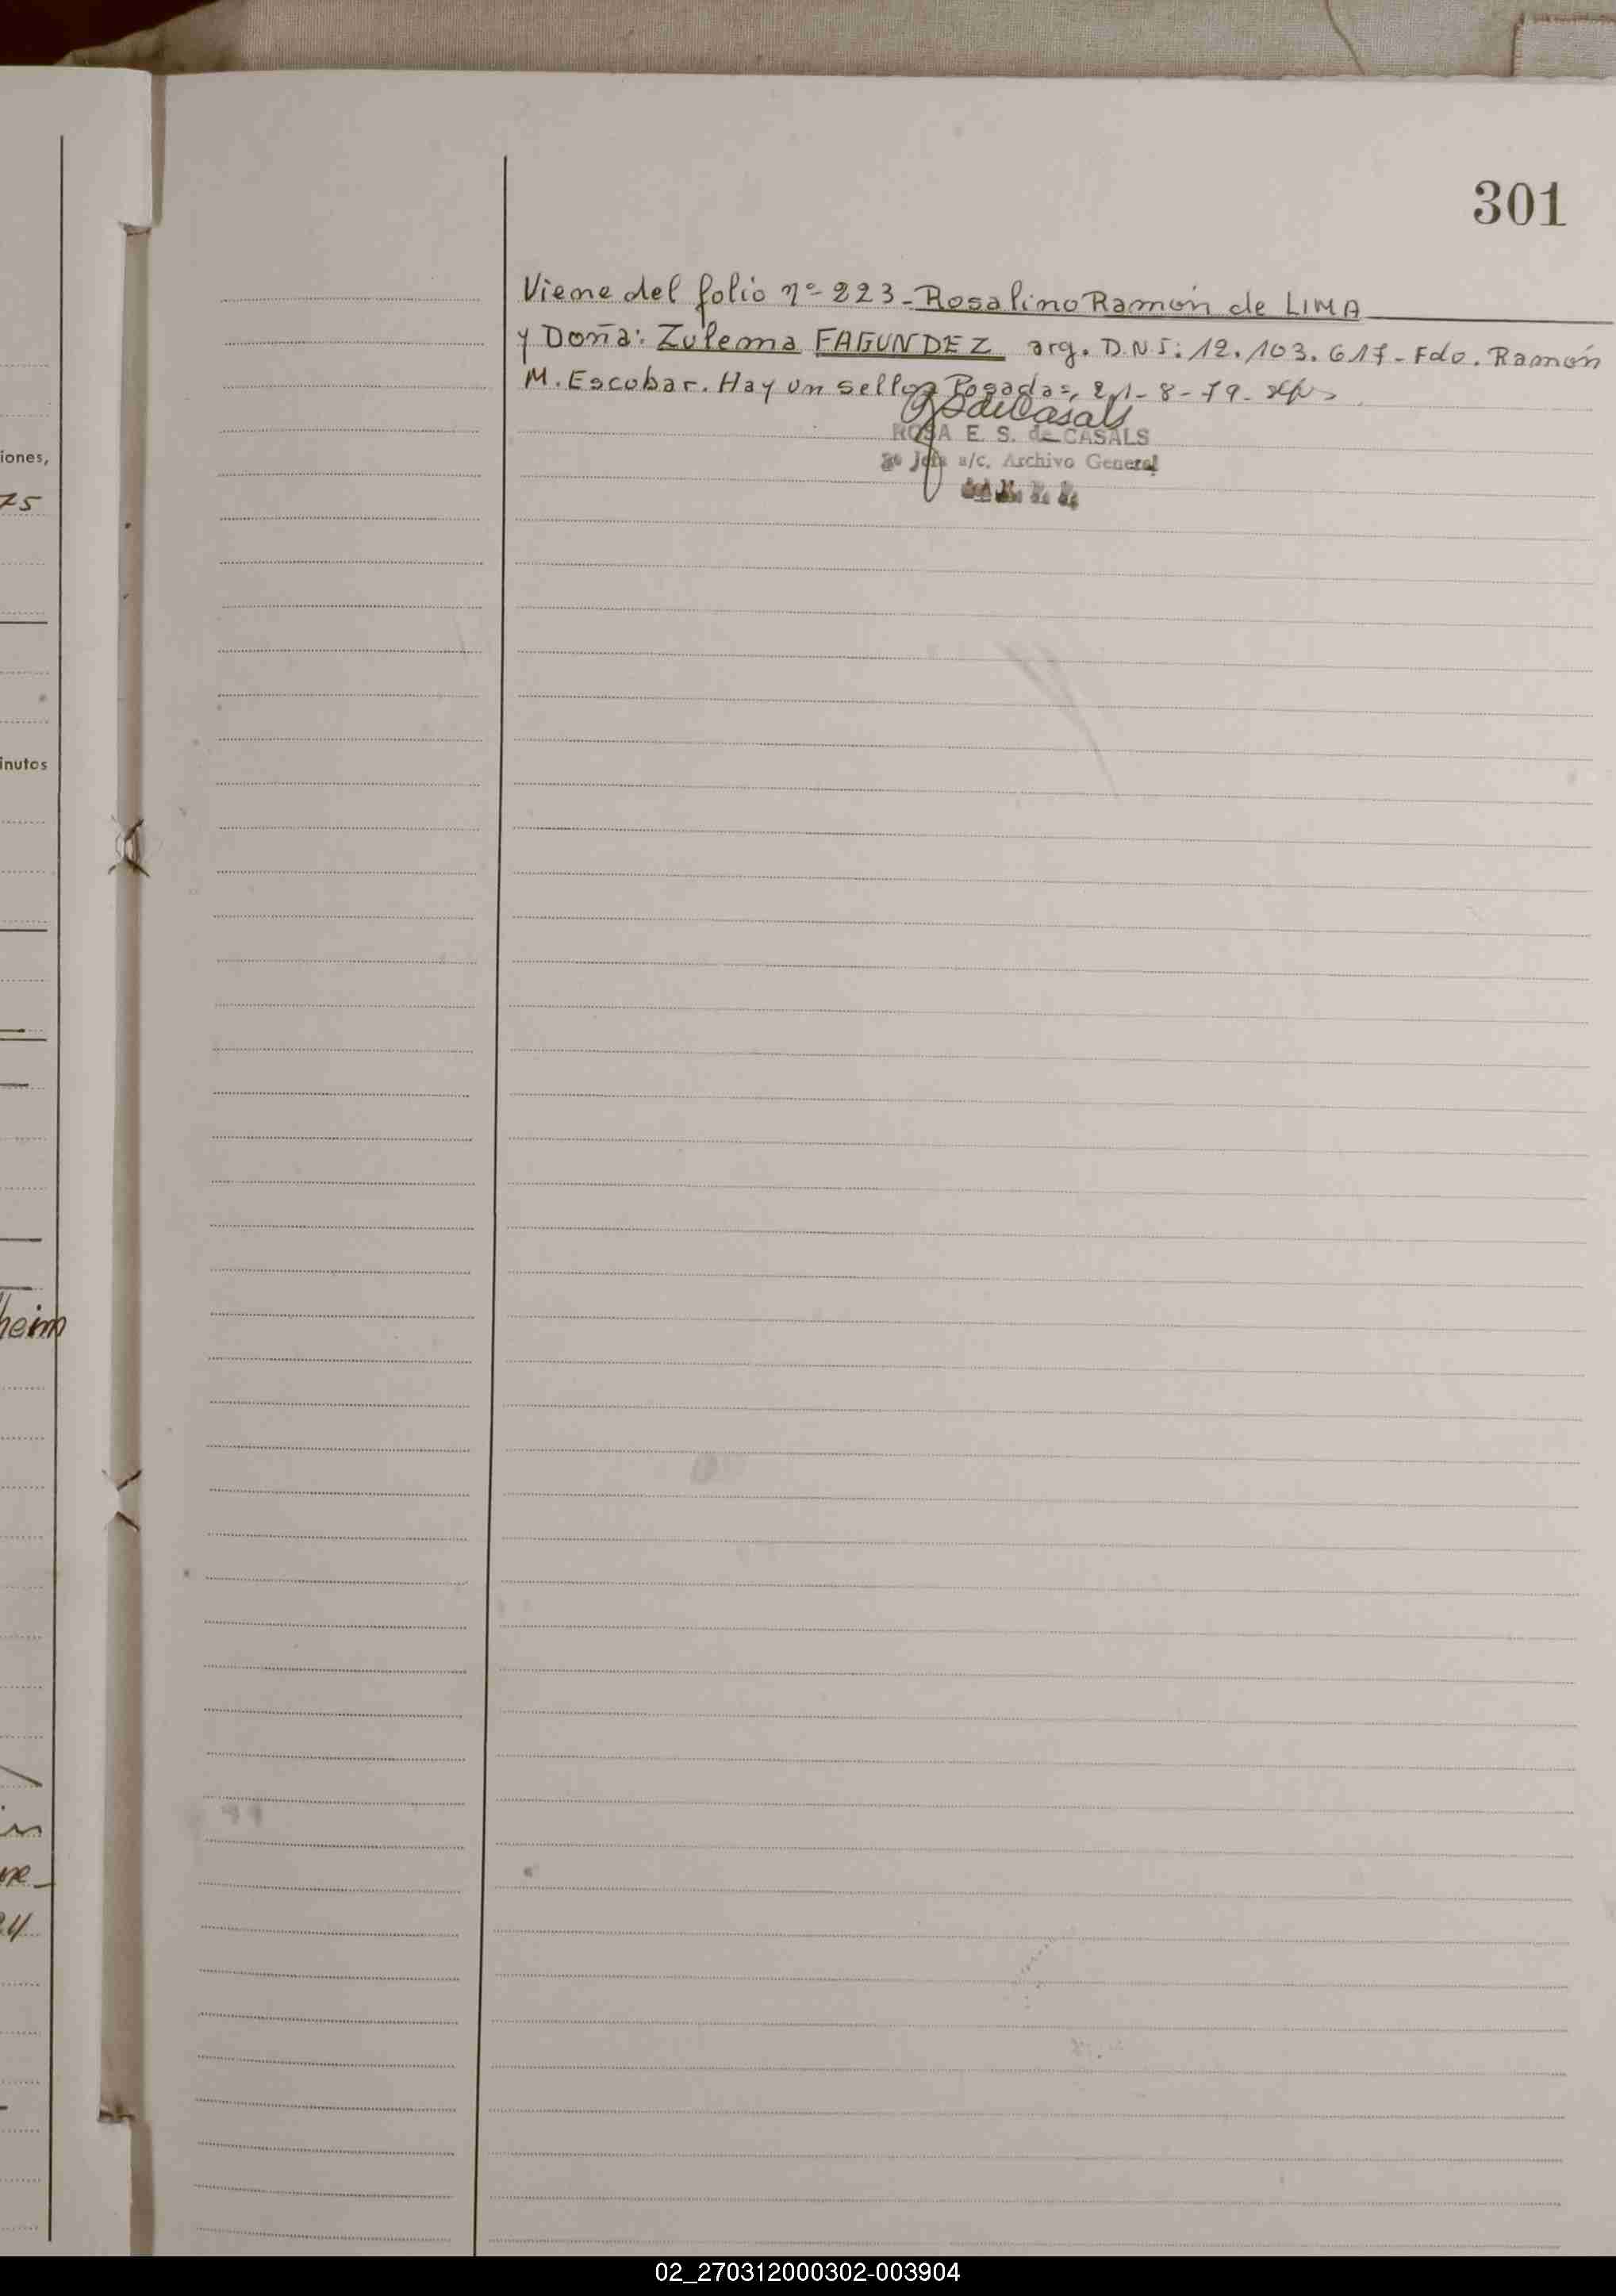 301
Viene del folio nº 223 - Rosalino Ramón de LIMA
y Doña: Zulema FAGUNDEZ arg. D.N.I: 12.103.617 - Fdo. Ramón
M. Escobar. Hay un sello. Posadas, 21-8-79.
ROSA E. S. de CASALS
Jefa a/c. Archivo General
iones,
75
inutos
heim
24
02_270312000302-003904